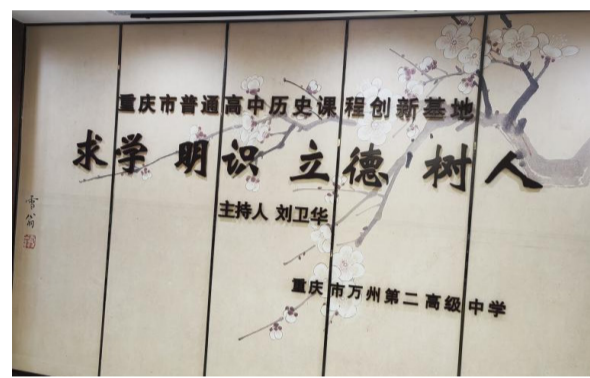 重庆市普通高中历史课程创新基地
求学 明识 立德 树人
主持人 刘卫华
重庆市万州第二高级中学
雪翁